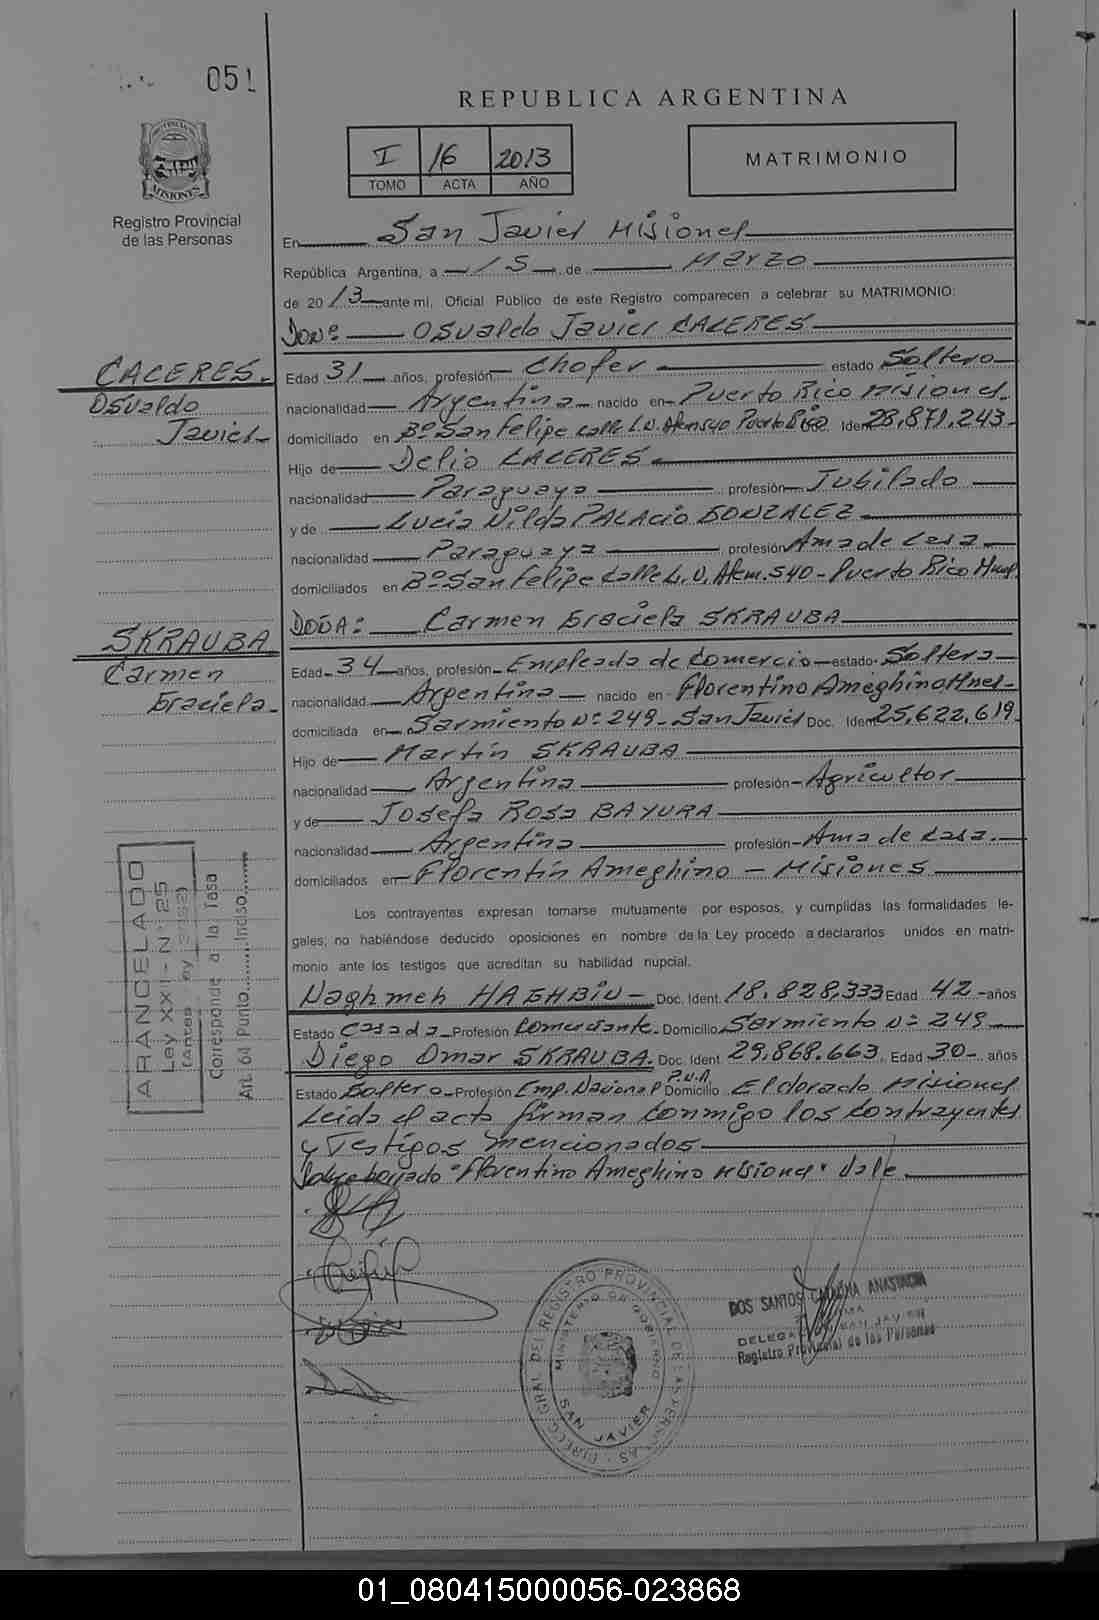 051
REPUBLICA ARGENTINA
I 16 2013
TOMO ACTA AÑO
MATRIMONIO
PROVINCIA DE MISIONES
Registro Provincial
de las Personas
En San Javier Misiones
República Argentina, a 15 de Marzo
de 2013 ante mi, Oficial Público de este Registro comparecen a celebrar su MATRIMONIO:
DON: Osvaldo Javier CACERES
CACERES.
Osvaldo
Javier
Edad 31 años, profesión Chofer estado Soltero
nacionalidad Argentina nacido en Puerto Rico Misiones
domiciliado en Bº San Felipe calle L.N. Alem 540 Puerto Rico Iden 28,871,243
Hijo de Delio CACERES
nacionalidad Paraguaya profesión Jubilado
y de Lucia Nilda PALACIO GONZALEZ
nacionalidad Paraguaya profesión Ama de casa
domiciliados en Bº San Felipe Calle L.N. Alem. 540 - Puerto Rico Mnes
DOÑA: Carmen Graciela SKRAUBA
SKRAUBA
Carmen
Graciela
Edad 34 años, profesión Empleada de Comercio estado Soltera
nacionalidad Argentina nacido en Florentino Ameghino Mnes
domiciliada en Sarmiento Nº 249 - San Javier Doc. Iden 25,622,619
Hijo de Martín SKRAUBA
nacionalidad Argentina profesión Agricultor
y de Josefa Rosa BAYURA
nacionalidad Argentina profesión Ama de casa.
domiciliados en Florentín Ameghino - Misiones
Los contrayentes expresan tomarse mutuamente por esposos, y cumplidas las formalidades le-
gales, no habiéndose deducido oposiciones en nombre de la Ley procedo a declararlos unidos en matri-
monio ante los testigos que acreditan su habilidad nupcial.
Naghmeh HAGHBIN Doc. Ident. 18.828,333 Edad 42 años
Estado Casada Profesión Comerciante. Domicilio Sarmiento Nº 249
Diego Omar SKRAUBA. Doc. Ident. 29,868.663 Edad 30 años
Estado Soltero Profesión Emp. Nacional P.N.A Domicilio Eldorado Misiones
Leida el acta firman conmigo los contrayentes
y Testigos mencionados
Sobreborrado "Florentino Ameghino Misiones" Vale
ARANCELADO
Ley XXI - Nº 25
(Antes Ley 2752)
Corresponde a la Tasa
Art. 64 Punto Inciso
DIRECC. GRAL. DEL REGISTRO PROVINCIAL DE LAS PERSONAS
MINISTERIO DE GOBIERNO
SAN JAVIER
DOS SANTOS ANASTACIA
DELEGADA SAN JAVIER
Registro Provincial de las Personas
01_080415000056-023868